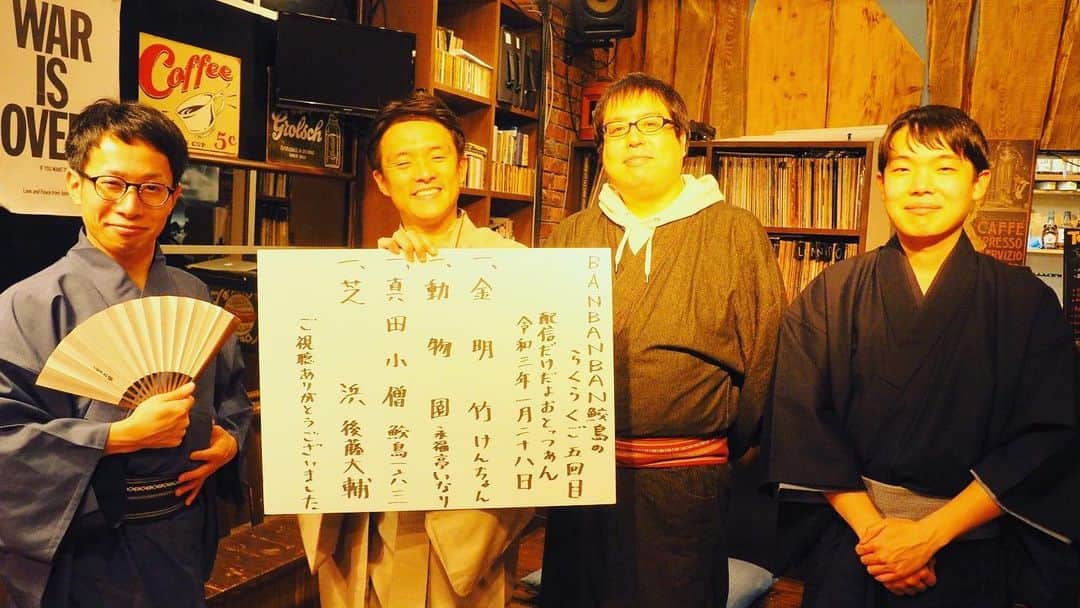 WAR
IS
OVER
IF YOU WANT IT
Coffee
5¢
CUP
Grolsch
BANBANBAN鮫島の
らくらくご五回目
配信だけだよおとっつぁん
令和三年一月二十八日
一、金明竹 けんちょん
一、動物園 永福亭いなり
一、真田小僧 鮫島一六三
一、芝浜 後藤大輔
ご視聴ありがとうございました
LONDON
CAFFE
ESPRESSO
SERVIZIO